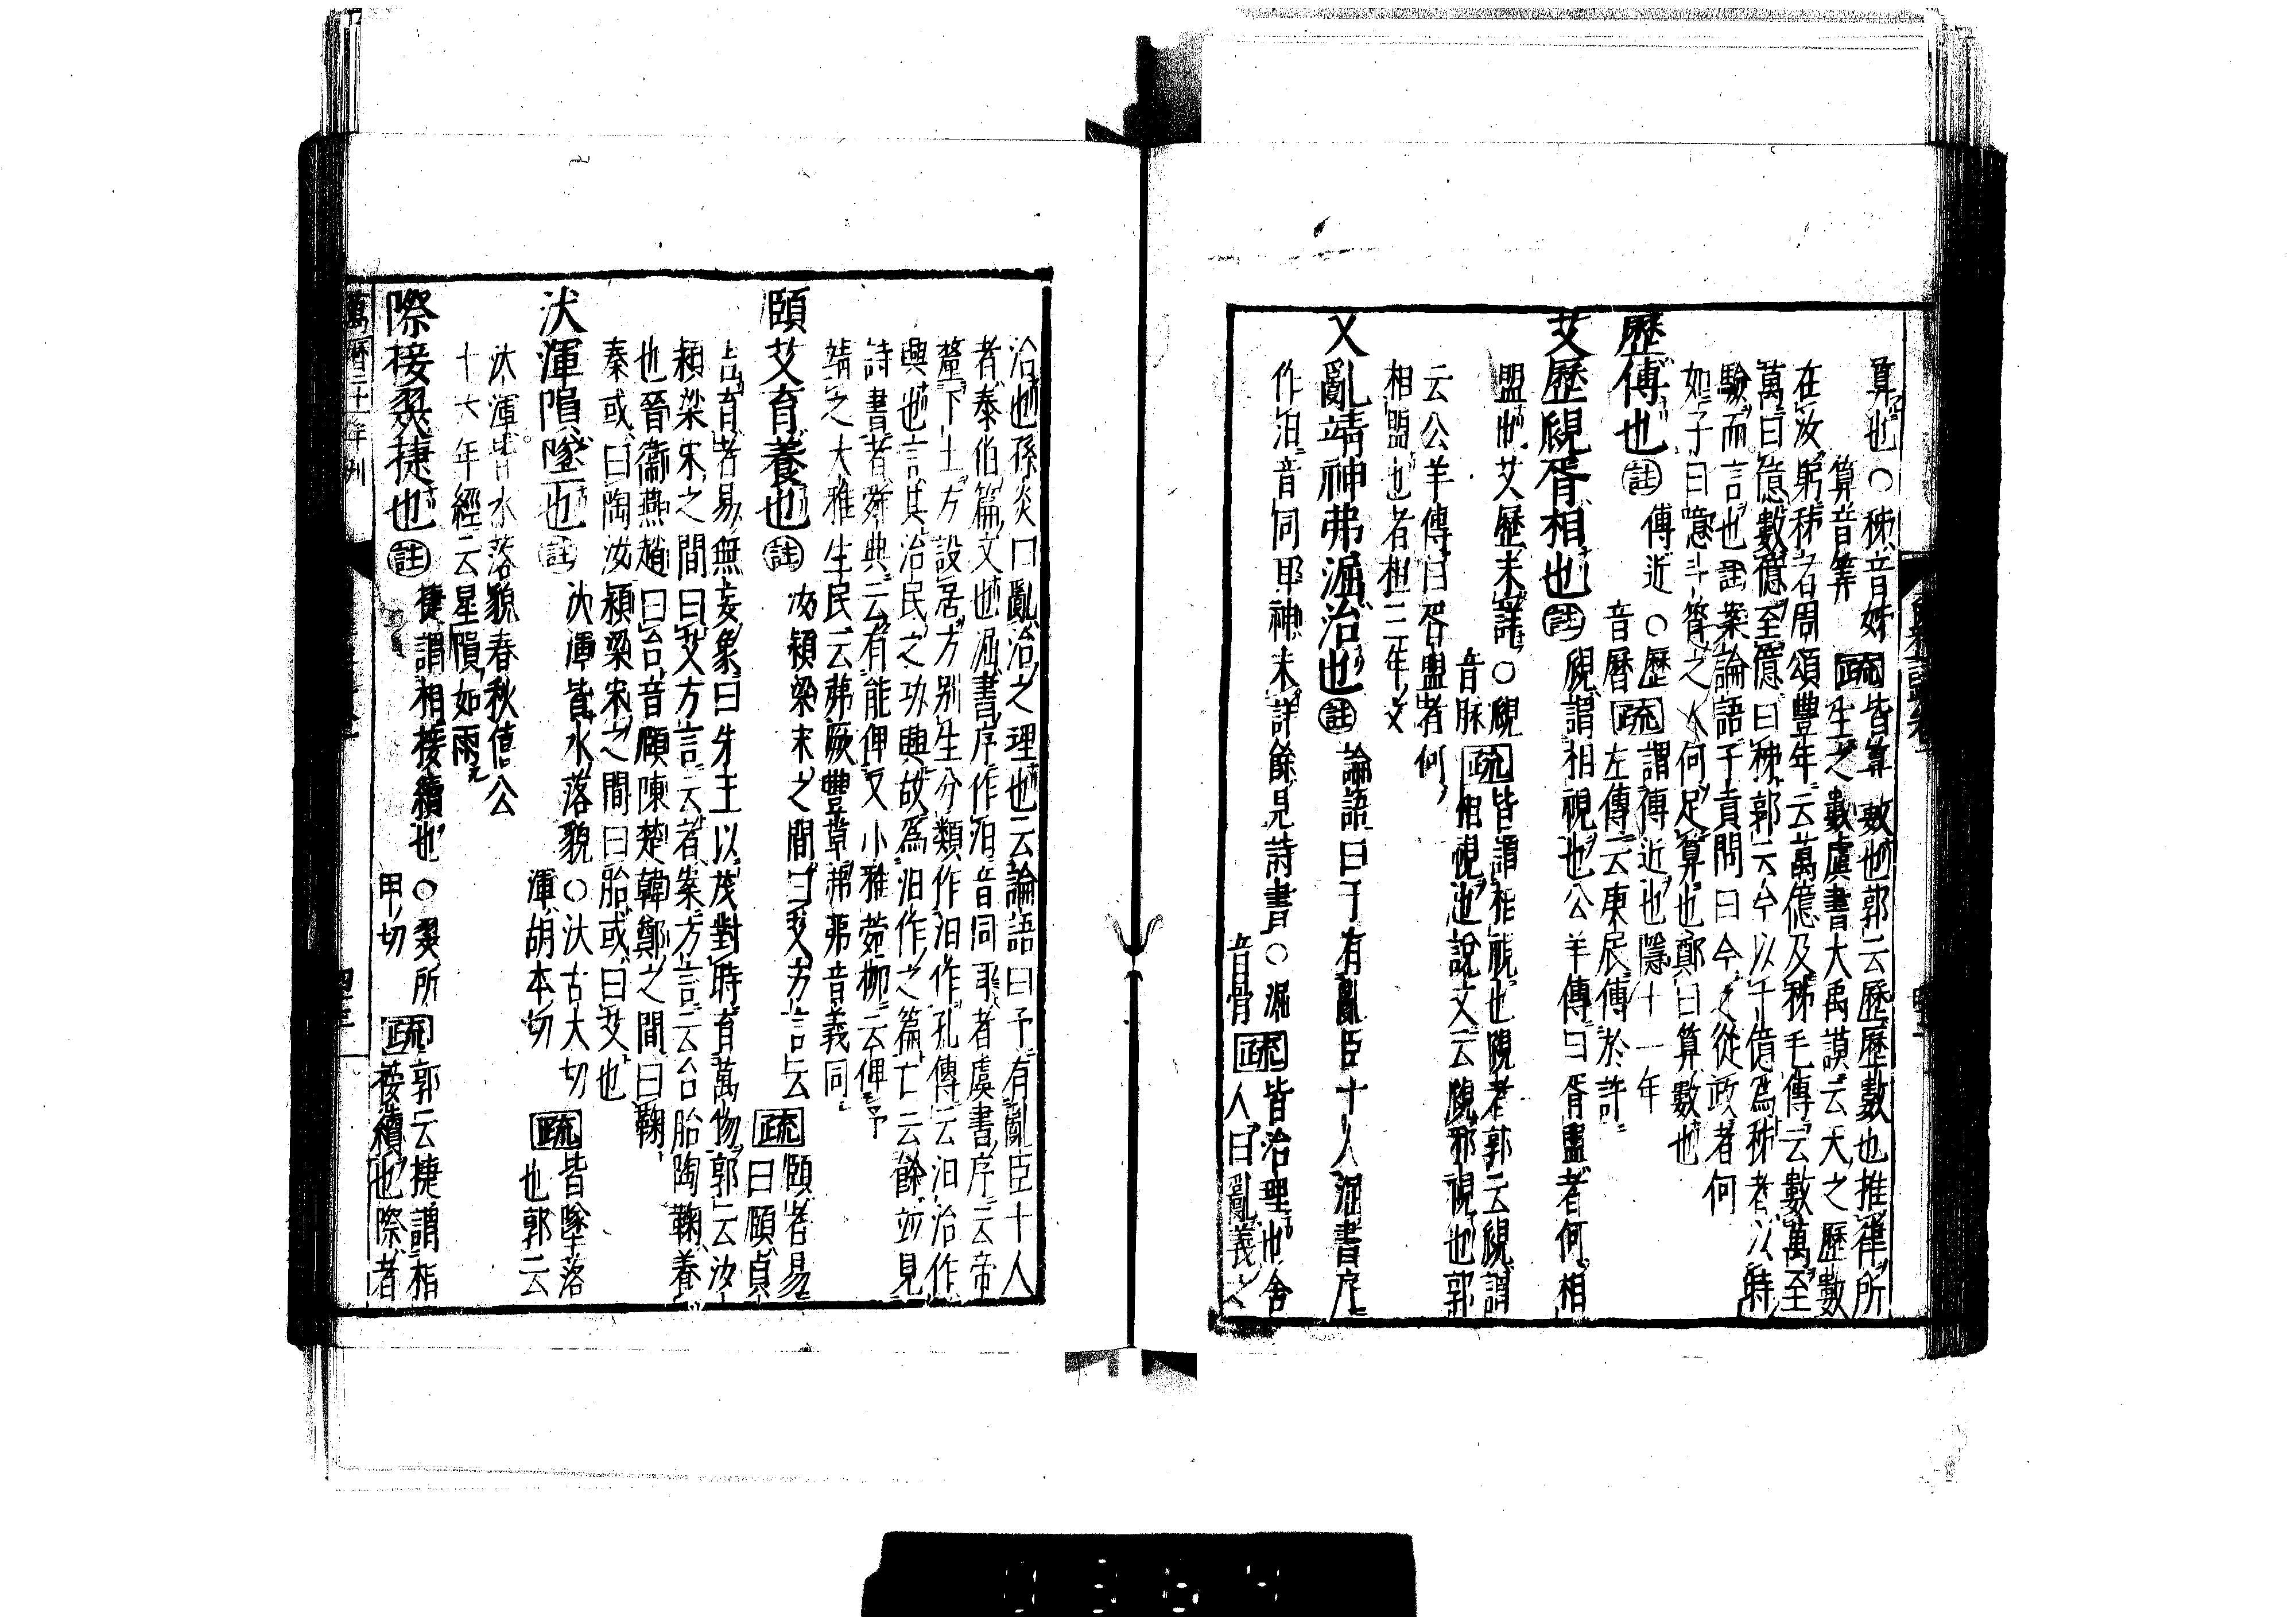 算也○秭音姊
算音筭
疏皆算數也郭云歷歷數也推律所
生之數虞書大禹謨云天之歷數
在汝躬秭者周頌豐年云萬億及秭毛傳云數萬至
萬曰億數億至億曰秭郭云今以千億爲秭者以時
驗而言也註案論語子貢問曰今之從政者何
如子曰噫斗筲之人何足算也鄭曰算數也
歷傅也註傅近○歷
音曆
疏謂傅近也隱十一年
左傳云東辰傅於許
艾歷覛胥相也註覛謂相視也公羊傳曰胥盟者何相
盟也艾歷未詳○覛
音脉
疏皆謂相視也覛者郭云覛謂
相視也說文云覛邪視也郭
云公羊傳曰胥盟者何
相盟也者桓三年文
乂亂靖神弗淈治也註論語曰予有亂臣十人淈書序
作汩音同耳神未詳餘見詩書○淈
音骨
疏皆治理也舍
人曰亂義之
治也孫炎曰亂治之理也云論語曰予有亂臣十人
者泰伯篇文也淈書序作汩音同耳者虞書序云帝
釐下土方設居方别生分類作汩作孔傳云汩治作
興也言其治民之功興故爲汩作之篇亡云餘竝見
詩書者舜典云有能俾乂小雅菀柳云俾予
靖之大雅生民云茀厥豐草茀弗音義同
頤艾育養也註汝潁梁宋之間曰艾方言云
疏頤者易
曰頤貞
吉育者易無妄象曰先王以茂對時育萬物郭云汝
潁梁宋之間曰艾方言云者案方言云台胎陶鞠養
也晉衞燕趙曰台音頤陳楚韓鄭之間曰鞠
秦或曰陶汝潁梁宋之間曰胎或曰艾也
汏渾隕墜也註汏渾皆水落貌○汏古大切
渾胡本切
疏皆墜落
也郭云
汏渾皆水落貌春秋僖公
十六年經云星隕如雨
際接翜捷也註捷謂相接續也○翜所
甲切
疏郭云捷謂相
接續也際者
萬曆二十一年刋